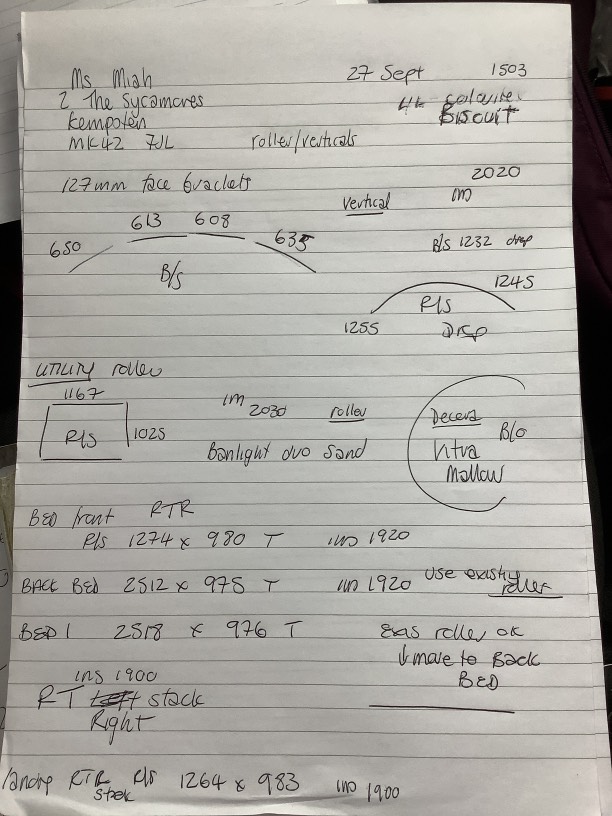 Ms Miah 27 Sept 1503
2 The Sycamores
Kempsten Biscuit
MK42 7JL roller/verticals
127mm face brackets 2020
vertical im
613 608
650 635 B/S 1232 drop
B/S
1245
R/S
1255 Drop
utility roller
1167
im 2030 roller Decera
R/S 1025 B/O
Banlight duo sand
Mallow
BED front RTR
R/S 1274 x 980 T ins 1920
BACK BED 2512 x 975 T ins 1920 use existing roller
BED 1 2518 x 976 T roller ok
↓ move to Back
BED
ins 1900
RT Left stack
Right
landing RTR R/S 1264 x 983 ins 1900
stack